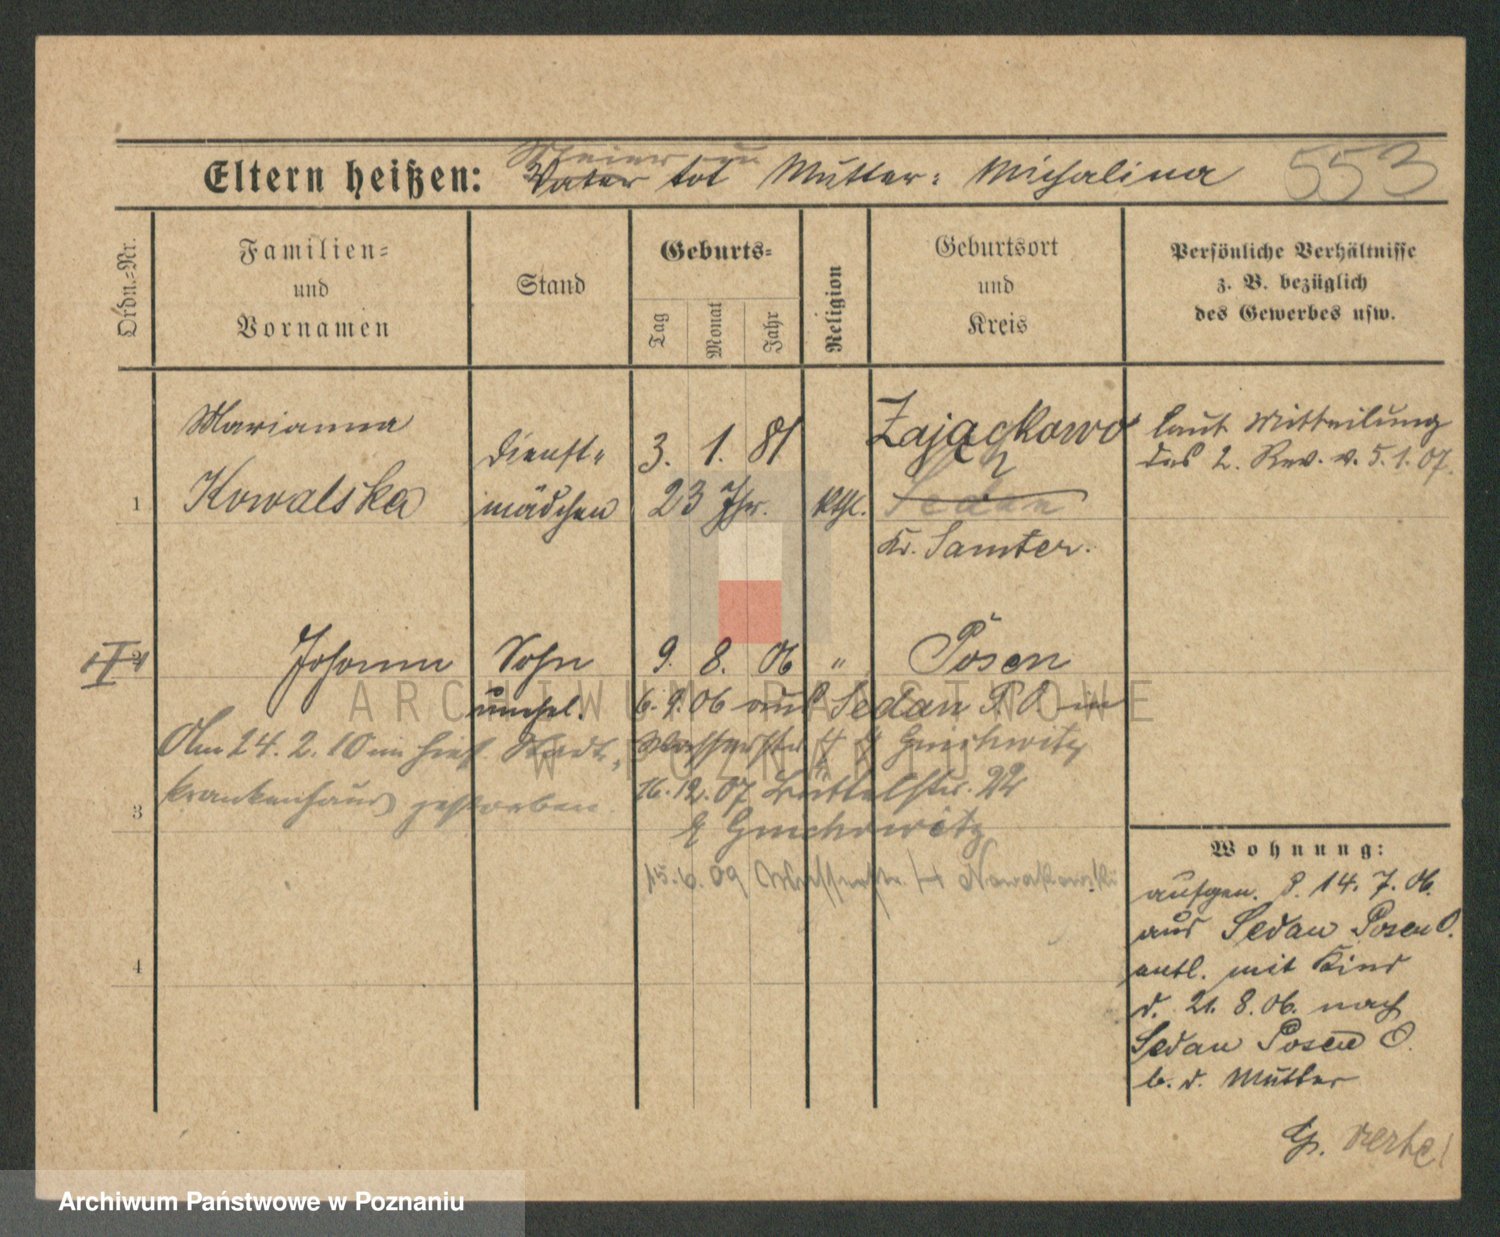 Eltern heißen: Vater tot Mutter: Michalina 553
Ordn.-Nr.
Familien-
und
Vornamen
Stand
Geburts-
Tag
Monat
Jahr
Religion
Geburtsort
und
Kreis
Persönliche Verhältnisse
z. B. bezüglich
des Gewerbes usw.
Marianna
Kowalska
Dienst-
mädchen
3. 1. 81
23 Jhr.
Kthl.
Zajączkowo
Sedan
Kr. Samter.
laut Mitteilung
des 2. Rev. v. 5.1.07.
1
2
Johann
Sohn
unehl.
9. 8. 06
"
Posen
6. 9. 06 aus Sedan P. O. in
Am 24. 2. 10 im hies. Stadt-
krankenhaus gestorben.
16. 12. 07 Büttelstr.
15. 6. 09 Nowakowski
3
4
Wohnung:
aufgen. d. 14. 7. 06.
aus Sedan Posen O.
entl. mit Kind
d. 21. 8. 06. nach
Sedan Posen O.
b. d. Mutter
ARCHIWUM PAŃSTWOWE
W POZNANIU
Archiwum Państwowe w Poznaniu